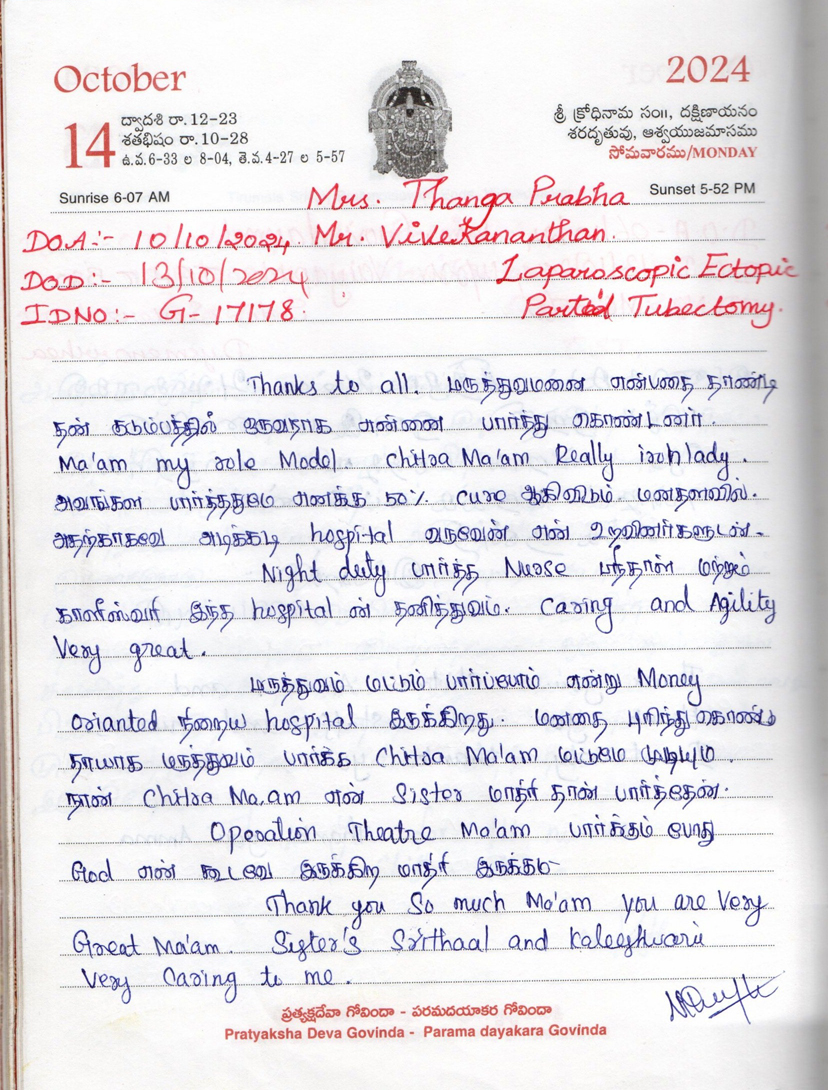 October
2024
14
ద్వాదశి రా.12-23
శతభిషం రా.10-28
ఉ.వ.6-33 ల 8-04, తె.వ.4-27 ల 5-57
శ్రీ క్రోధినామ సం॥, దక్షిణాయనం
శరదృతువు, ఆశ్వయుజమాసము
సోమవారము/MONDAY
Sunrise 6-07 AM
Sunset 5-52 PM
Mrs. Thanga Prabha
DOA:- 10/10/2024. Mr. Vivekananthan.
DOD:- 13/10/2024 Laparoscopic Ectopic
IDNO:- G-17178. Partial Tubectomy.
Thanks to all. மருத்துவமனை என்பதை தாண்டி
தன் குடும்பத்தில் ஒருவராக என்னை பார்த்து கொண்டனர்.
Ma'am my role Model. Chitra Ma'am Really iron lady.
அவங்கள பார்த்ததுமே எனக்கு 50% cure ஆகிவிடும் மனதளவில்.
அதற்காகவே அடிக்கடி hospital வருவேன் என் உறவினர்களுடன்.
Night duty பார்த்த Nurse ஸ்ரீதாள் மற்றும்
காளீஸ்வரி இந்த hospital ன் தனித்துவம். Caring and Agility
Very great.
மருத்துவம் மட்டும் பார்ப்போம் என்று Money
orianted நிறைய hospital இருக்கிறது. மனதை புரிந்து கொண்டு
தாயாக மருத்துவம் பார்க்க Chitra Ma'am மட்டுமே முடியும்.
நான் Chitra Ma.am என் Sister மாதிரி தான் பார்த்தேன்.
Operation Theatre Ma'am பார்க்கும் போது
God என் கூடவே இருக்கிற மாதிரி இருக்கும்
Thank you So much Ma'am you are Very
Great Ma'am. Sister's Srithaal and Kaleeshwari
Very Caring to me.
ప్రత్యక్షదేవా గోవిందా - పరమదయాకర గోవిందా
Pratyaksha Deva Govinda - Parama dayakara Govinda